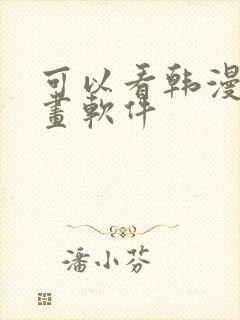 可以看韩漫
畫軟件
潘小芬